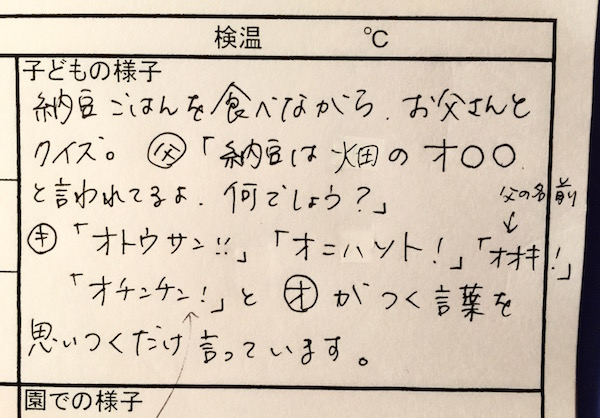 検温 ℃
子どもの様子
納豆ごはんを食べながら、お父さんと
クイズ。㊛「納豆は畑のオ〇〇
と言われてるよ。何でしょう?」
父の名前
↓
㋖「オトウサン!!」「オニハソト!」「オオキ!」
「オチンチン!」と㋔がつく言葉を
思いつくだけ言っています。
園での様子